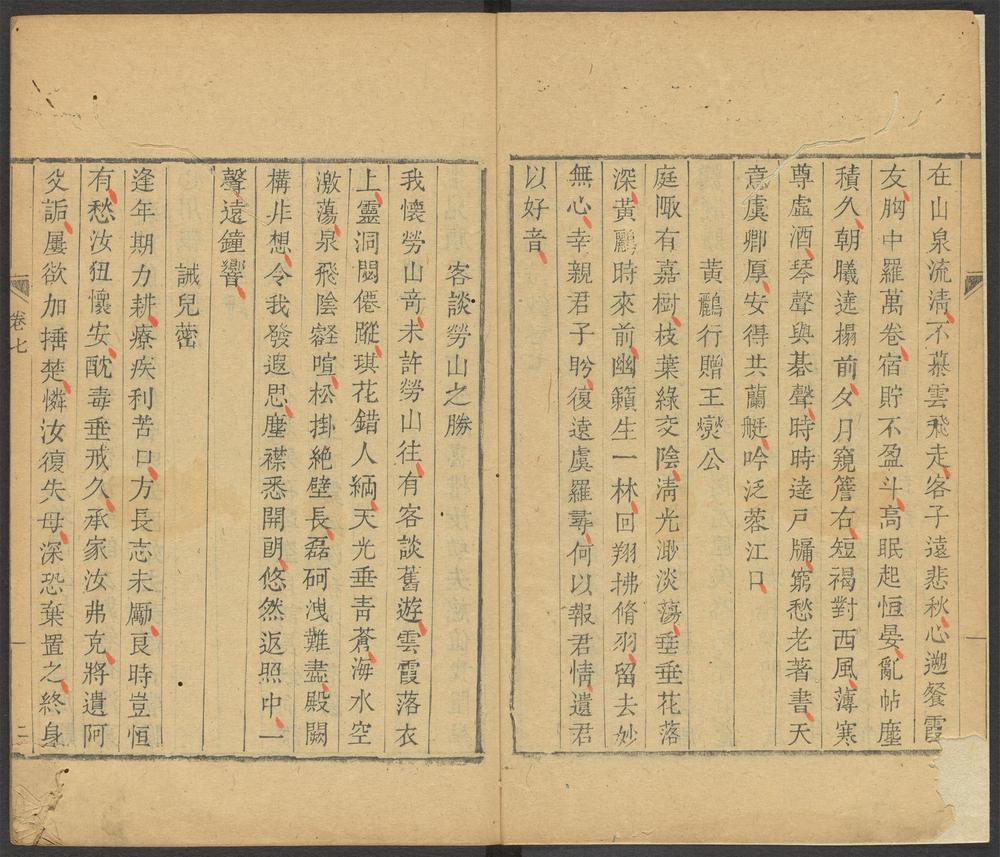 在山泉流清不慕雲飛走客子遠悲秋心遡餐霞
友胸中羅萬卷宿貯不盈斗高眠起恒晏亂帖塵
積久朝曦進榻前夕月窺簷右短褐對西風薄寒
尊盧酒琴聲與碁聲時時達戶牖窮愁老著書天
意虞卿厚安得共蘭艇吟泛蓉江口
黃鸝行贈王燮公
庭陬有嘉樹枝葉綠交陰清光渺淡蕩垂垂花落
深黃鸝時來前幽籟生一林回翔拂脩羽留去妙
無心幸親君子盻復遠虞羅尋何以報君情遺君
以好音
客談勞山之勝
我懷勞山奇未許勞山往有客談舊遊雲霞落衣
上靈洞閟僊蹤琪花錯人緉天光垂青蒼海水空
激蕩泉飛陰壑暄松掛絶壁長磊砢洩難盡殿闕
構非想令我發遐思塵襟悉開朗悠然返照中一
聲遠鐘響
誡兒蓥
逢年期力耕療疾利苦口方長志未勵良時豈恒
有愁汝狃懷安酖毒垂戒久承家汝弗克將遺阿
爻詬屢欲加捶楚憐汝復失母深恐棄置之終身
卷七
二